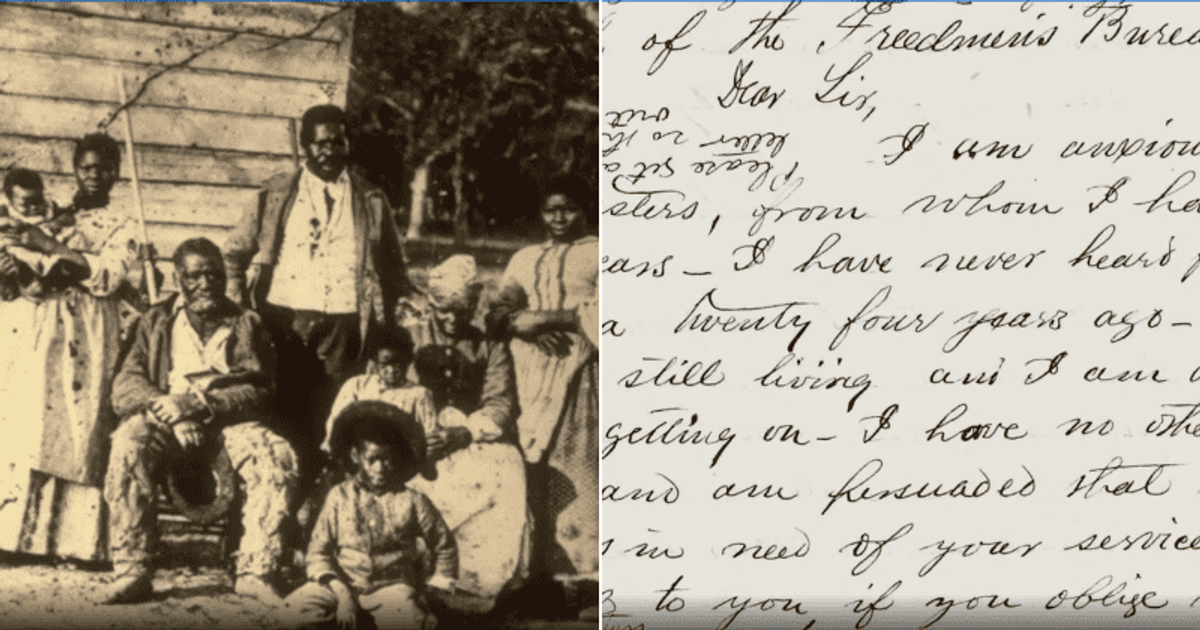 of the Freedmen's Burea
Dear Sir,
Please set a
letter to th
I am anxiou
sters, from whom I ha
ears — I have never heard f
a twenty four years ago —
still living and I am a
getting on — I have no othe
and am persuaded that
in need of your service
to you, if you oblige